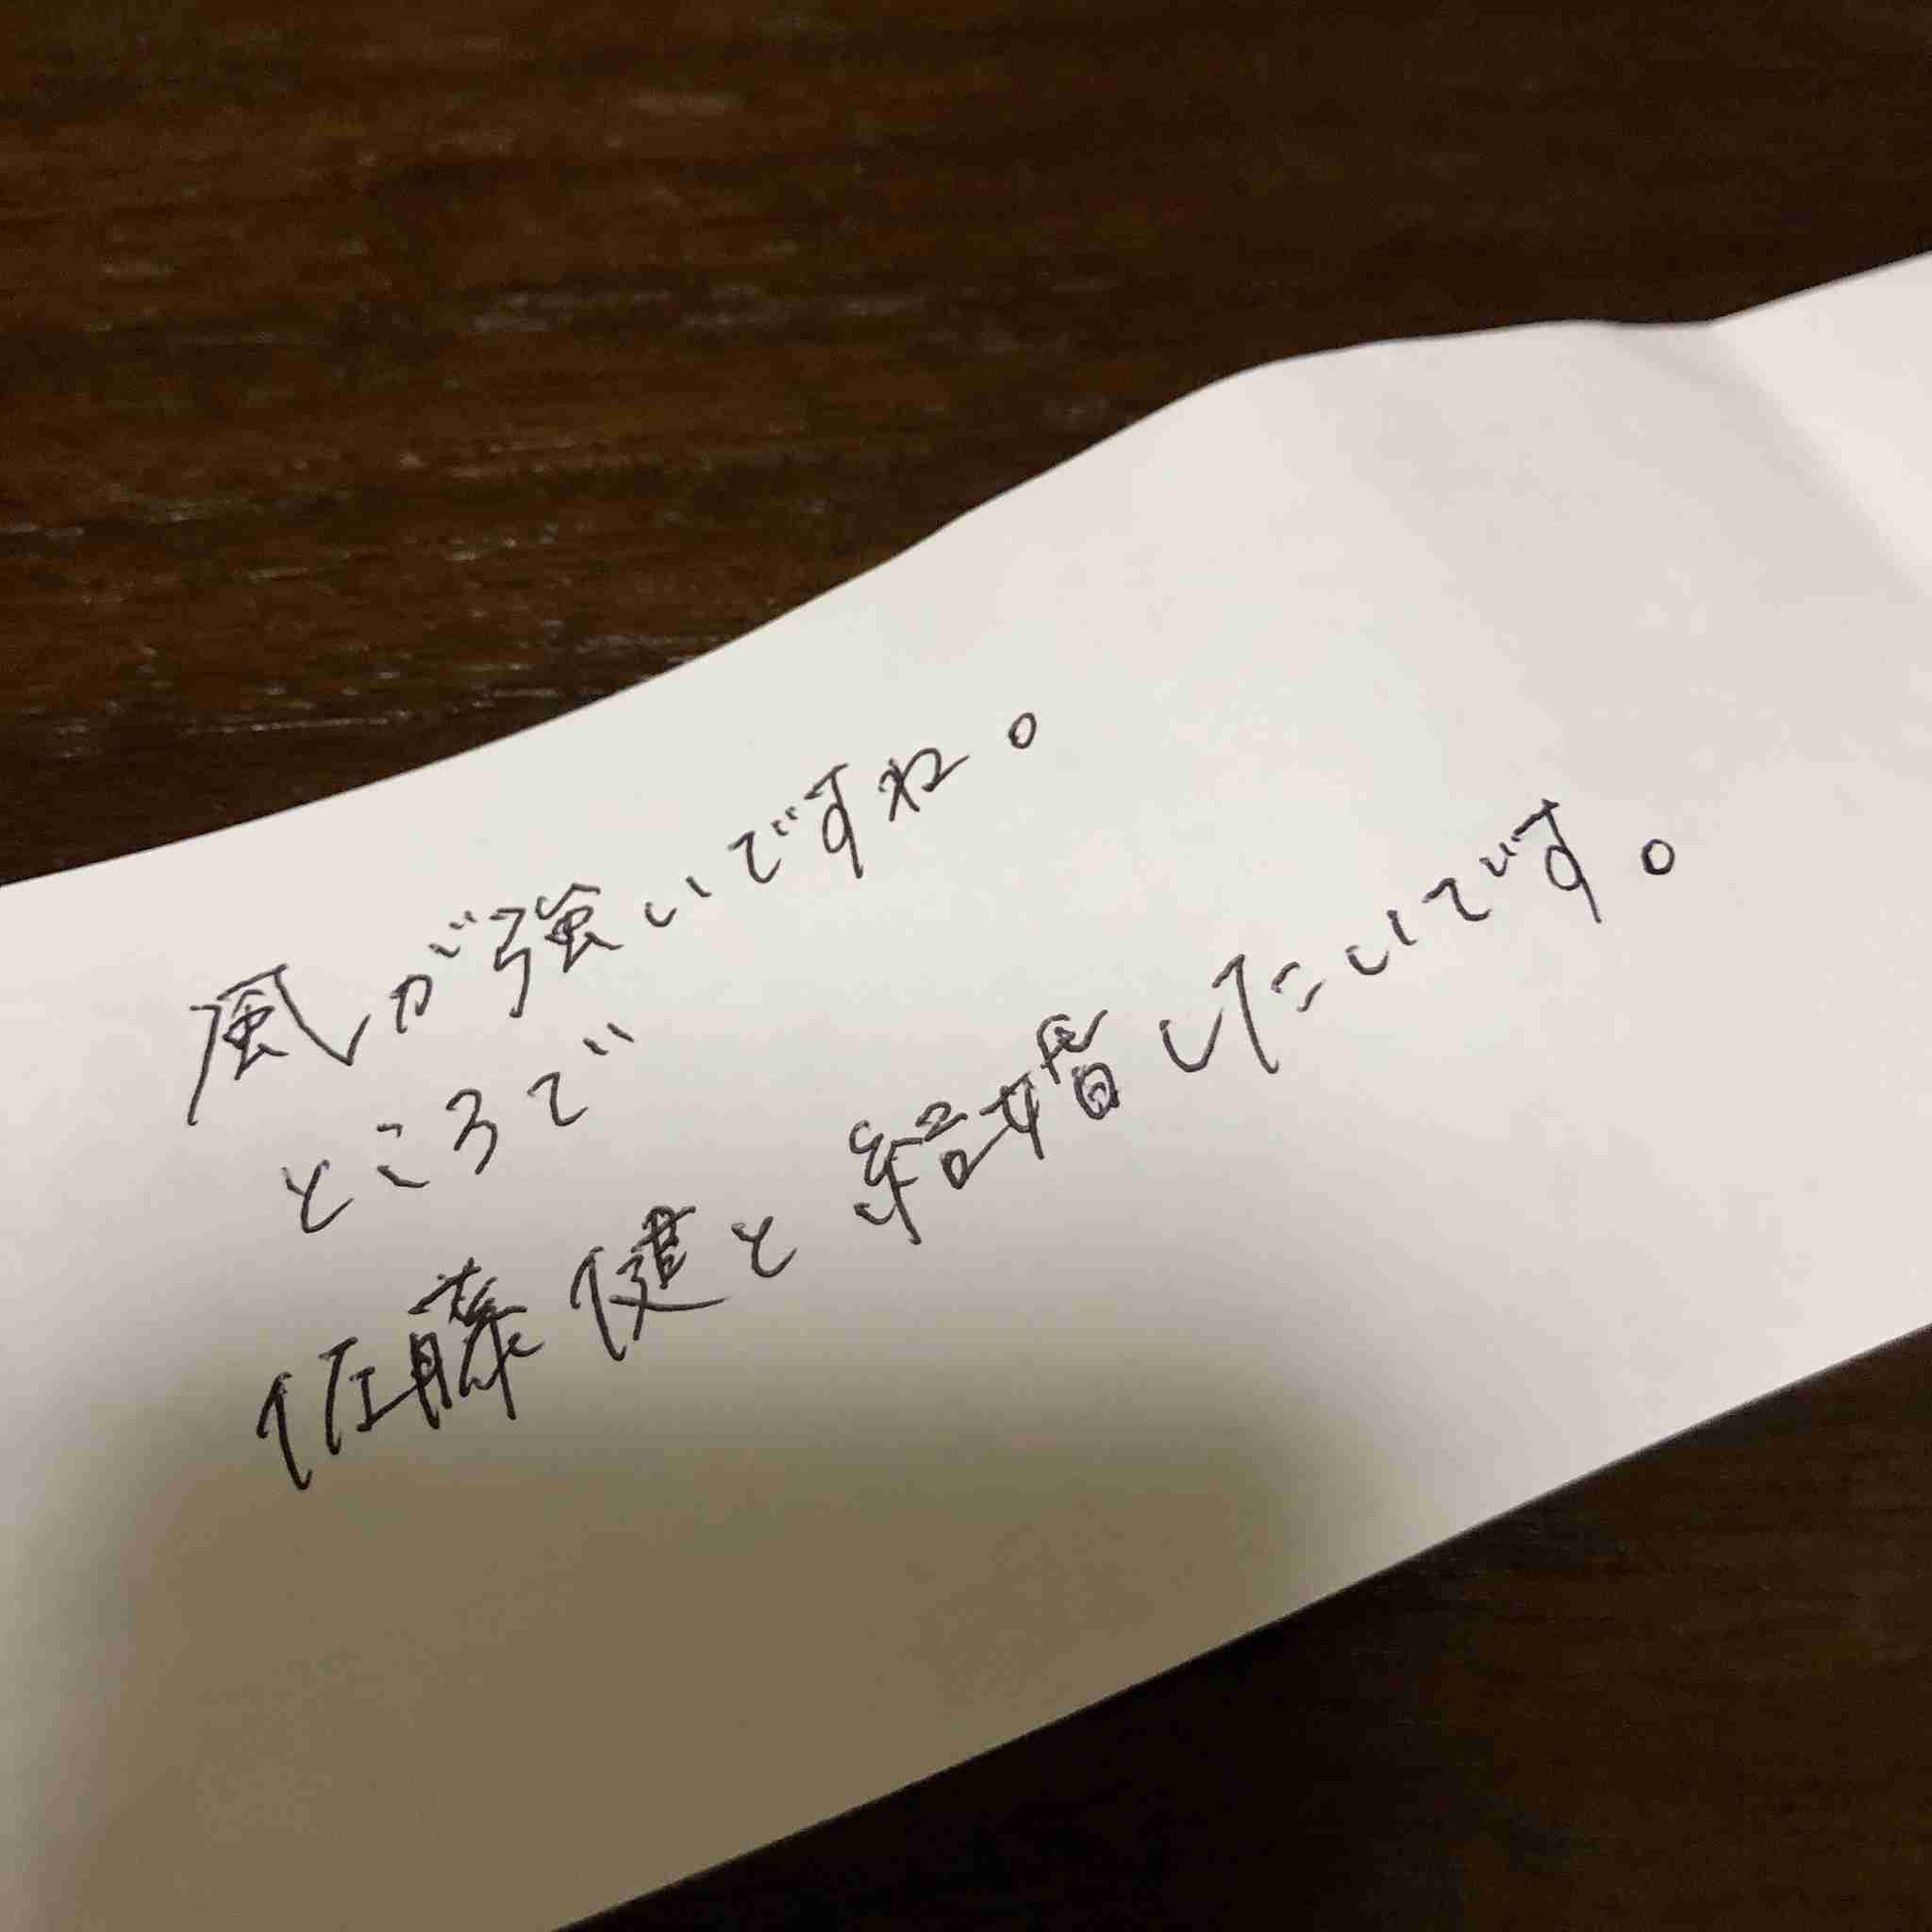 風が強いですね。
ところで
佐藤健と結婚したいです。